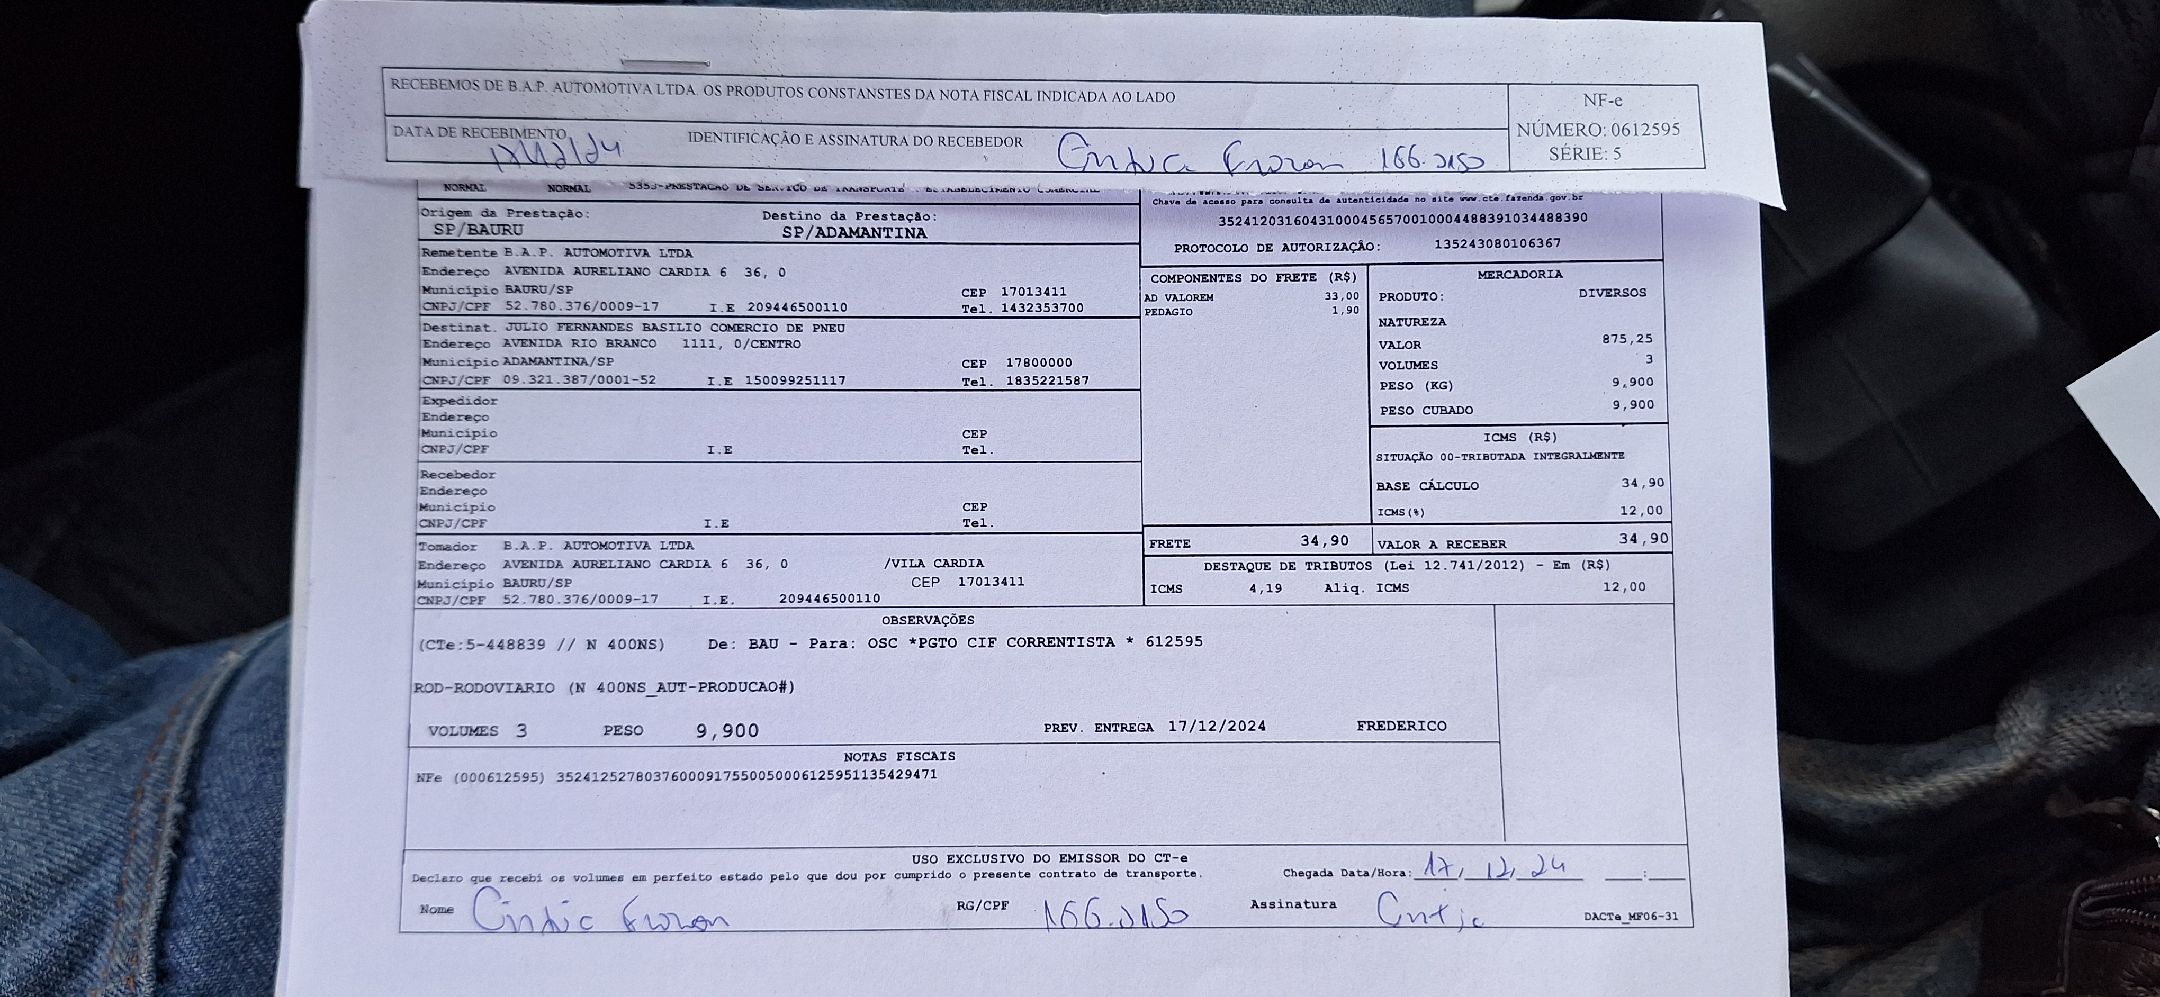 RECEBEMOS DE B.A.P. AUTOMOTIVA LTDA. OS PRODUTOS CONSTANSTES DA NOTA FISCAL INDICADA AO LADO
NF-e
NÚMERO: 0612595
SÉRIE: 5
DATA DE RECEBIMENTO 17/12/24
IDENTIFICAÇÃO E ASSINATURA DO RECEBEDOR
NORMAL NORMAL 5353-PRESTACAO DE SERVICO DE TRANSPORTE
Chave de acesso para consulta de autenticidade no site www.cte.fazenda.gov.br
35241203160431000456570010004488391034488390
PROTOCOLO DE AUTORIZAÇÃO: 135243080106367
Origem da Prestação: Destino da Prestação:
SP/BAURU SP/ADAMANTINA
Remetente B.A.P. AUTOMOTIVA LTDA
Endereço AVENIDA AURELIANO CARDIA 6 36, 0
Município BAURU/SP CEP 17013411
CNPJ/CPF 52.780.376/0009-17 I.E 209446500110 Tel. 1432353700
Destinat. JULIO FERNANDES BASILIO COMERCIO DE PNEU
Endereço AVENIDA RIO BRANCO 1111, 0/CENTRO
Município ADAMANTINA/SP CEP 17800000
CNPJ/CPF 09.321.387/0001-52 I.E 150099251117 Tel. 1835221587
Expedidor
Endereço
Município CEP
CNPJ/CPF I.E Tel.
Recebedor
Endereço
Município CEP
CNPJ/CPF I.E Tel.
Tomador B.A.P. AUTOMOTIVA LTDA
Endereço AVENIDA AURELIANO CARDIA 6 36, 0 /VILA CARDIA
Município BAURU/SP CEP 17013411
CNPJ/CPF 52.780.376/0009-17 I.E. 209446500110
COMPONENTES DO FRETE (R$)
AD VALOREM 33,00
PEDAGIO 1,90
MERCADORIA
PRODUTO: DIVERSOS
NATUREZA
VALOR 875,25
VOLUMES 3
PESO (KG) 9,900
PESO CUBADO 9,900
ICMS (R$)
SITUAÇÃO 00-TRIBUTADA INTEGRALMENTE
BASE CÁLCULO 34,90
ICMS(%) 12,00
FRETE 34,90 VALOR A RECEBER 34,90
DESTAQUE DE TRIBUTOS (Lei 12.741/2012) - Em (R$)
ICMS 4,19 Aliq. ICMS 12,00
OBSERVAÇÕES
(CTe:5-448839 // N 400NS) De: BAU - Para: OSC *PGTO CIF CORRENTISTA * 612595
ROD-RODOVIARIO (N 400NS_AUT-PRODUCAO#)
VOLUMES 3 PESO 9,900 PREV. ENTREGA 17/12/2024 FREDERICO
NOTAS FISCAIS
NFe (000612595) 35241252780376000917550050006125951135429471
USO EXCLUSIVO DO EMISSOR DO CT-e
Declaro que recebi os volumes em perfeito estado pelo que dou por cumprido o presente contrato de transporte. Chegada Data/Hora: 17/12/24 :
Nome RG/CPF Assinatura DACTe_MF06-31